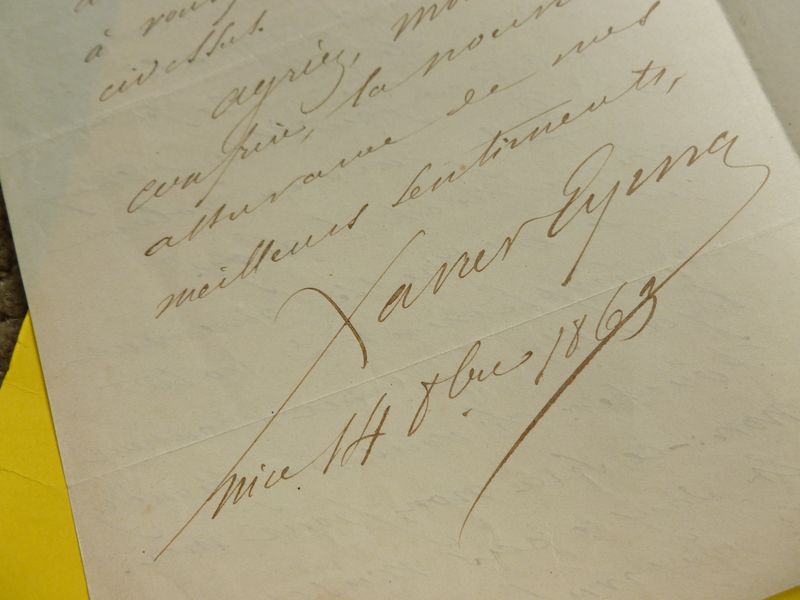 à
ci dessus.
agréez, mon
confrère, la nouv
assurance de mes
meilleurs sentiments,
Xavier Eyma
nice 14 8bre 1863